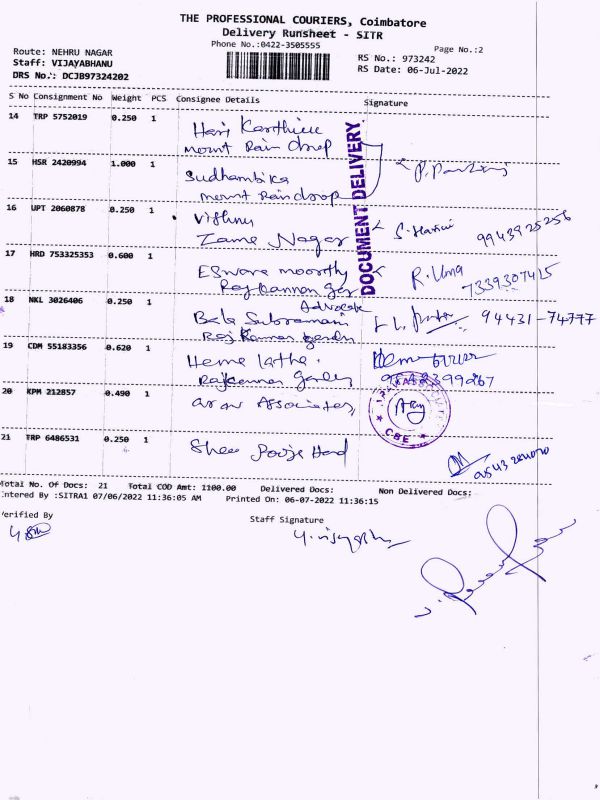 THE PROFESSIONAL COURIERS, Coimbatore
Delivery Runsheet - SITR
Phone No.:0422-3505555
Page No.:2
Route: NEHRU NAGAR
Staff: VIJAYABHANU
DRS No.: DCJB97324202
RS No.: 973242
RS Date: 06-Jul-2022
S No Consignment No Weight PCS Consignee Details Signature
14 TRP 5752019 0.250 1 Hari Karthi
Mount Rain drop
15 HSR 2420994 1.000 1 Sudhambika
mount Raindrop
16 UPT 2060878 0.250 1 Vishnu
Zame Nagar S. Harini 9943925256
17 HRD 753325353 0.600 1 Eswara moorthy R. Uma
Rajkannan 7339307415
18 NKL 3026406 0.250 1 Advocate
Bala Subramani 94431-74777
Raj Kannan
19 CDM 55183356 0.620 1 Hema latha.
Rajkannan
20 KPM 212857 0.490 1 Associates,
21 TRP 6486531 0.250 1 Shee Pooja
DOCUMENT DELIVERY.
CBE
Total No. Of Docs: 21 Total COD Amt: 1100.00 Delivered Docs: Non Delivered Docs:
Entered By :SITRA1 07/06/2022 11:36:05 AM Printed On: 06-07-2022 11:36:15
Verified By
Staff Signature